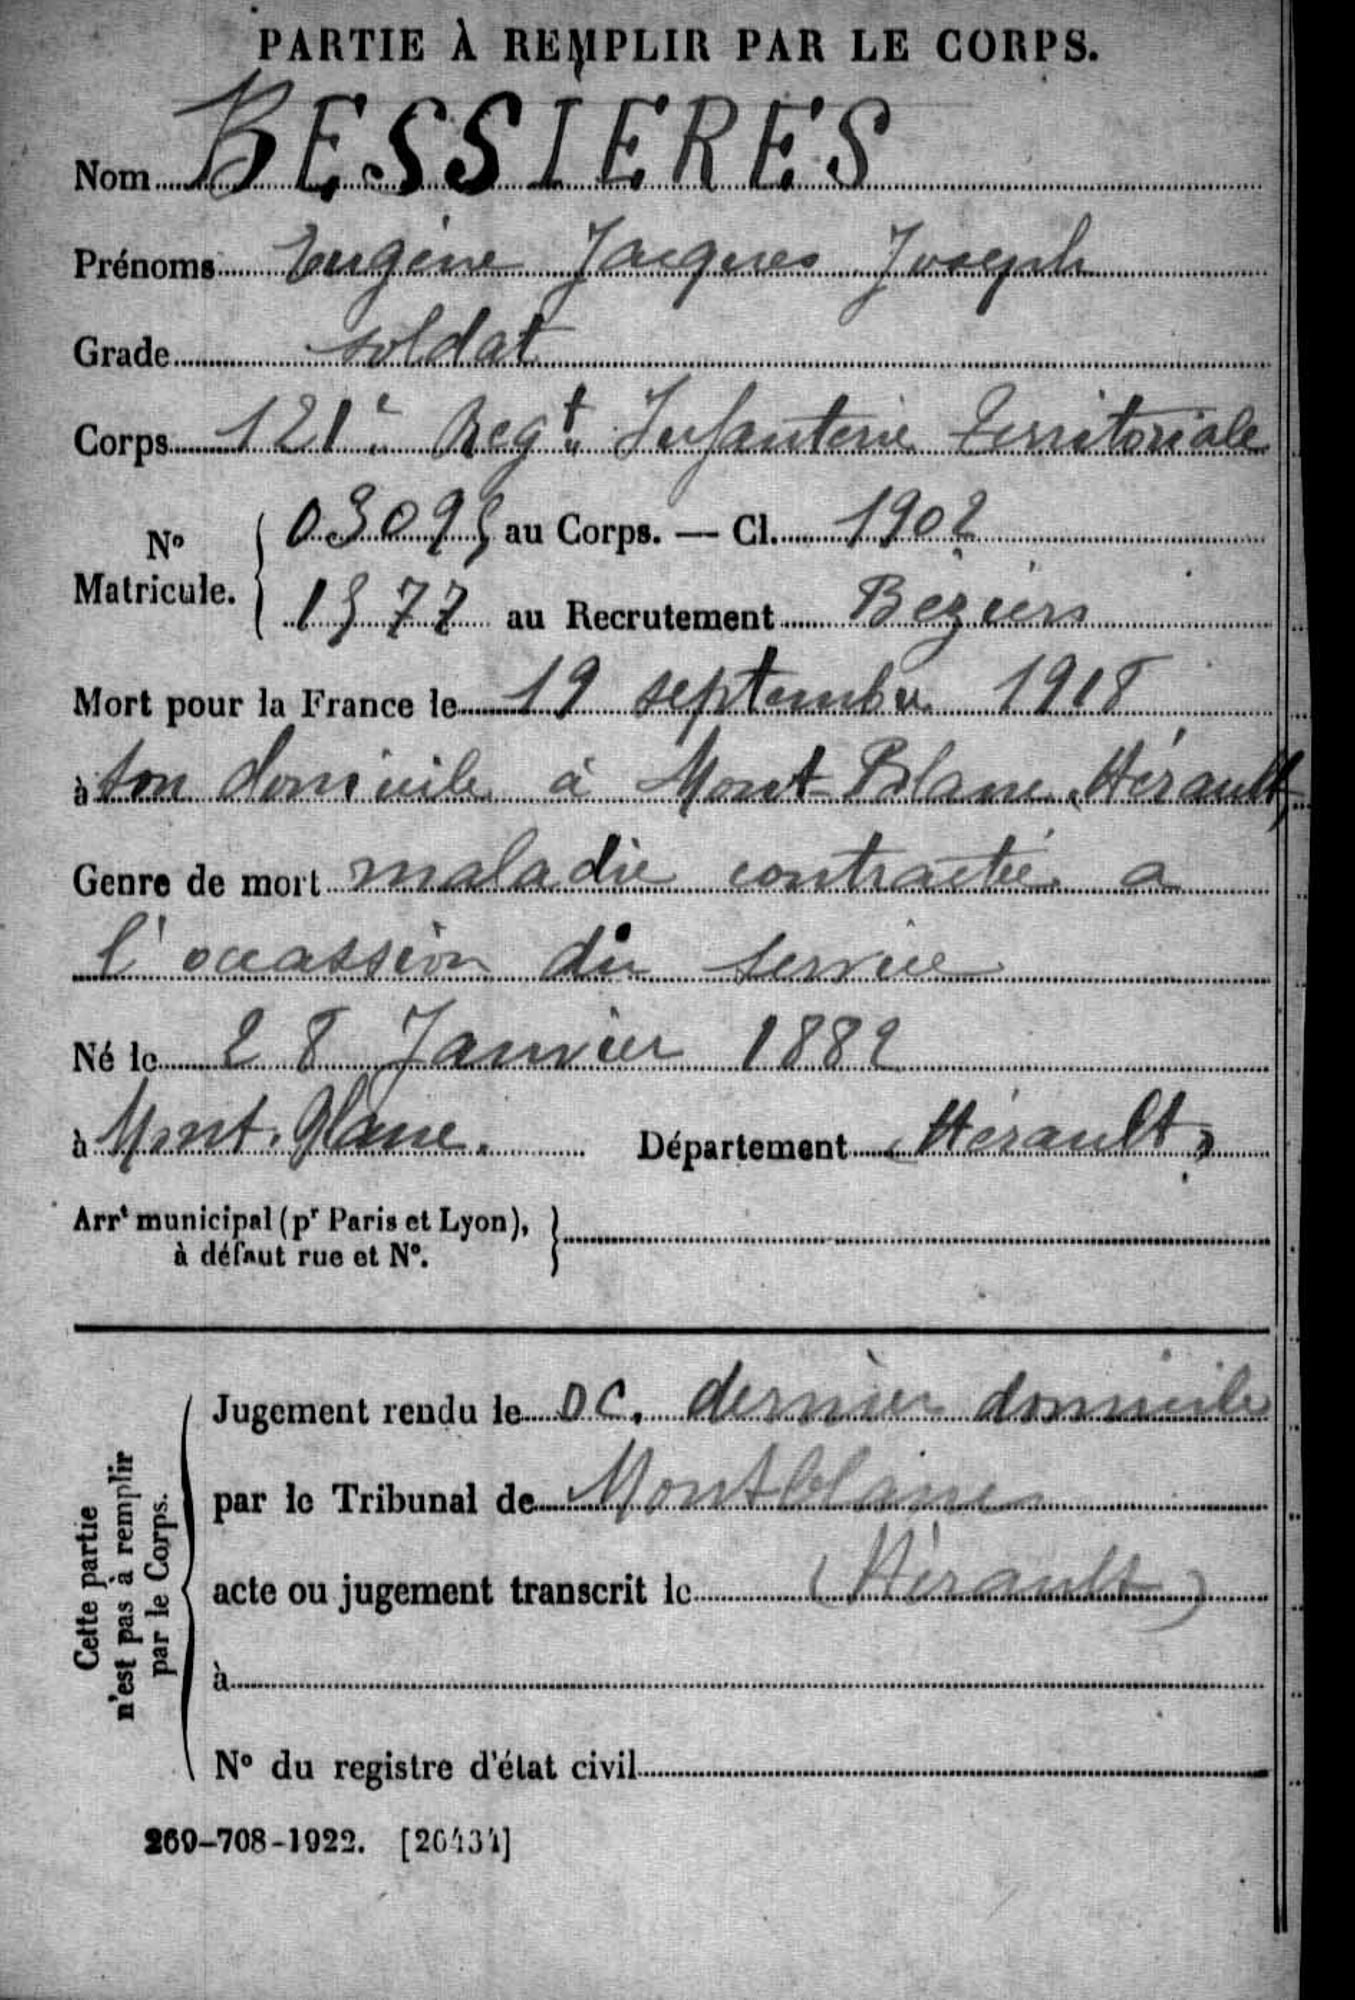 PARTIE À REMPLIR PAR LE CORPS.
Nom BESSIERES
Prénoms Eugène Jacques Joseph
Grade soldat
Corps 121e Regt Infanterie Territoriale
No Matricule. 03095 au Corps. — Cl. 1902
1577 au Recrutement Beziers
Mort pour la France le 19 septembre 1918
à son domicile à Mont-Blanc (Hérault)
Genre de mort maladie contractée a
l'ocassion du service
Né le 28 Janvier 1882
à Mont-Blanc. Département (Hérault)
Arrt municipal (pr Paris et Lyon),
à défaut rue et No.
Cette partie
n'est pas à remplir
par le Corps.
Jugement rendu le DC. dernier domicile
par le Tribunal de Montblanc
acte ou jugement transcrit le (Hérault)
à
No du registre d'état civil
269-708-1922. [26434]